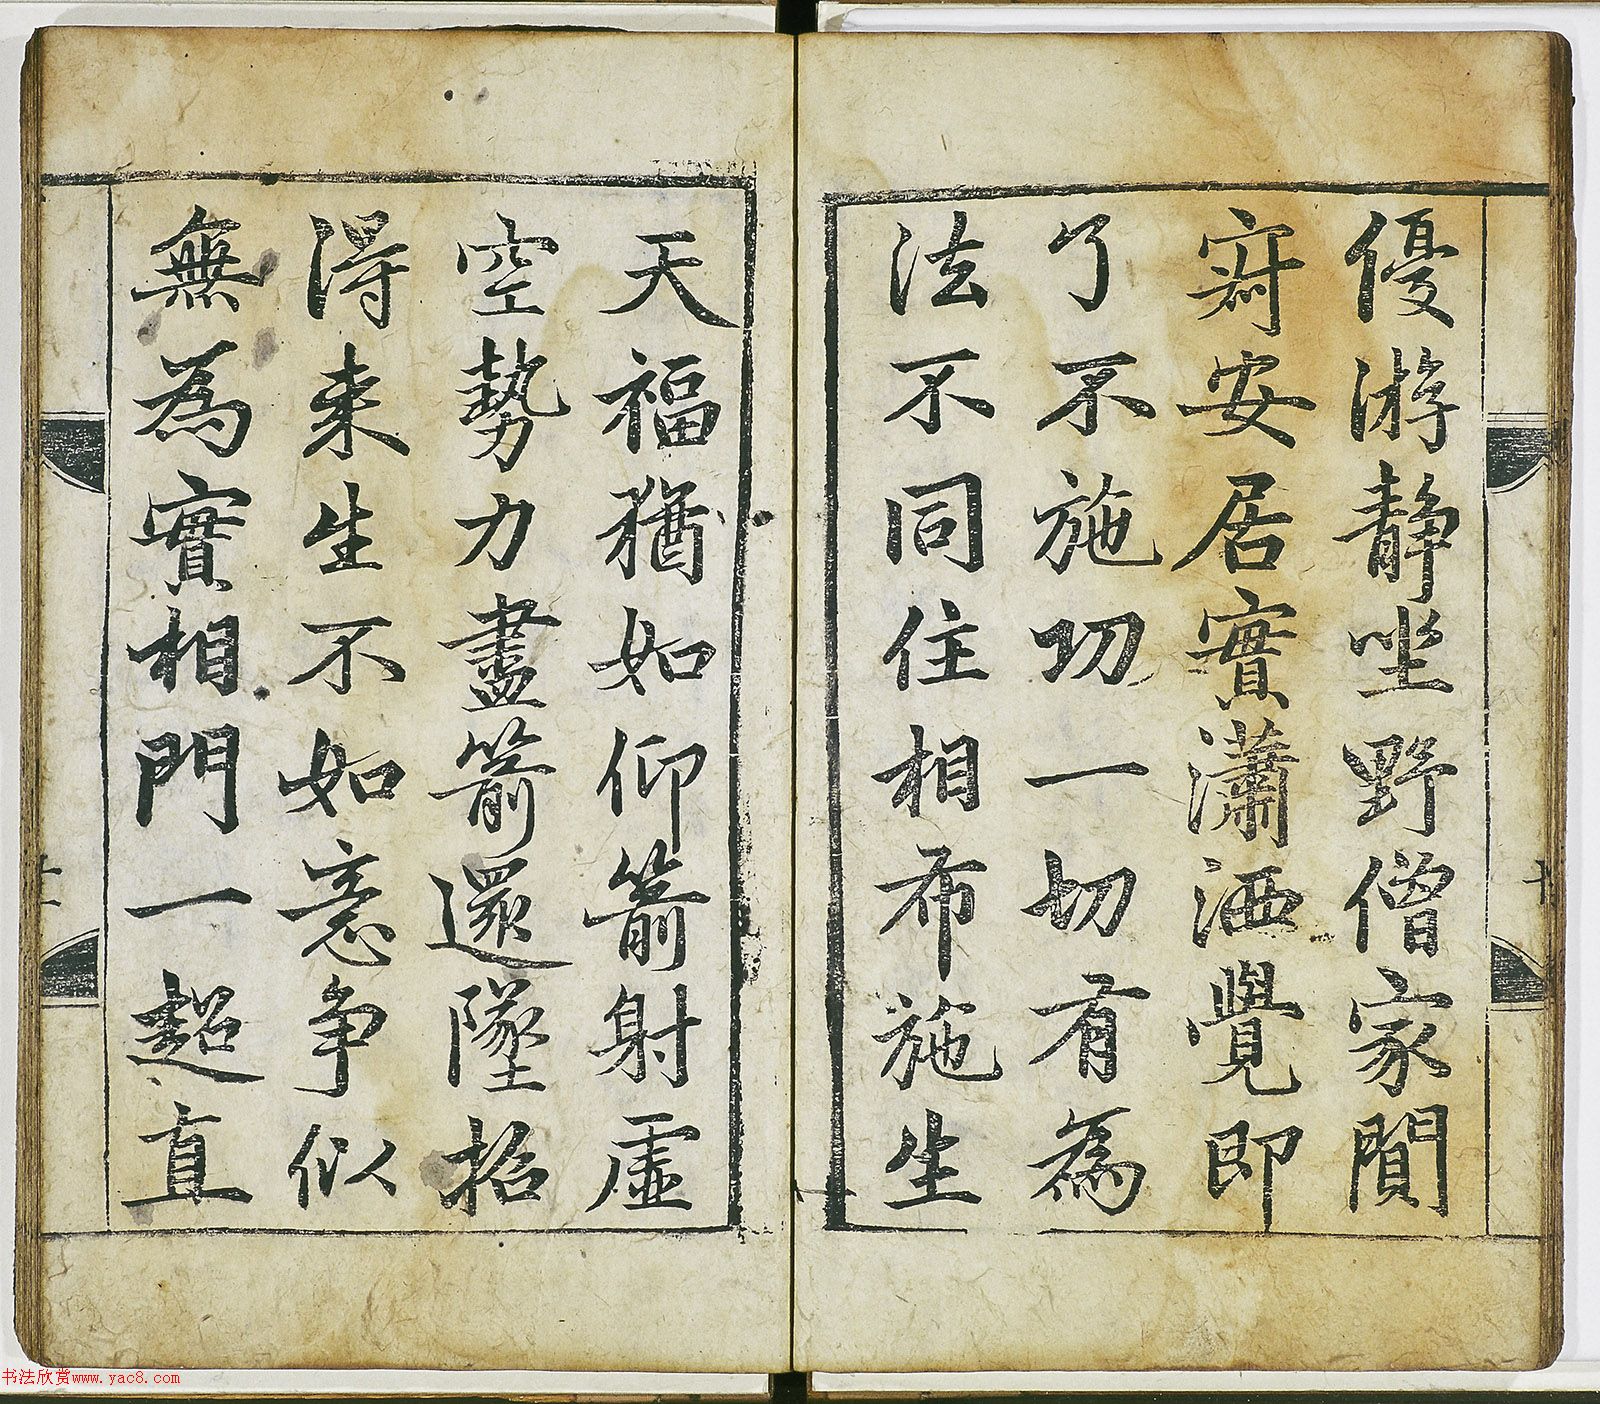 優游静坐野僧家閴
㝥安居實瀟洒覺即
了不施功一切有為
法不同住相布施生
天福猶如仰箭射虛
空勢力盡箭還墜招
淂来生不如意争似
無為實相門一超直
十
十二
书法欣赏www.yac8.com